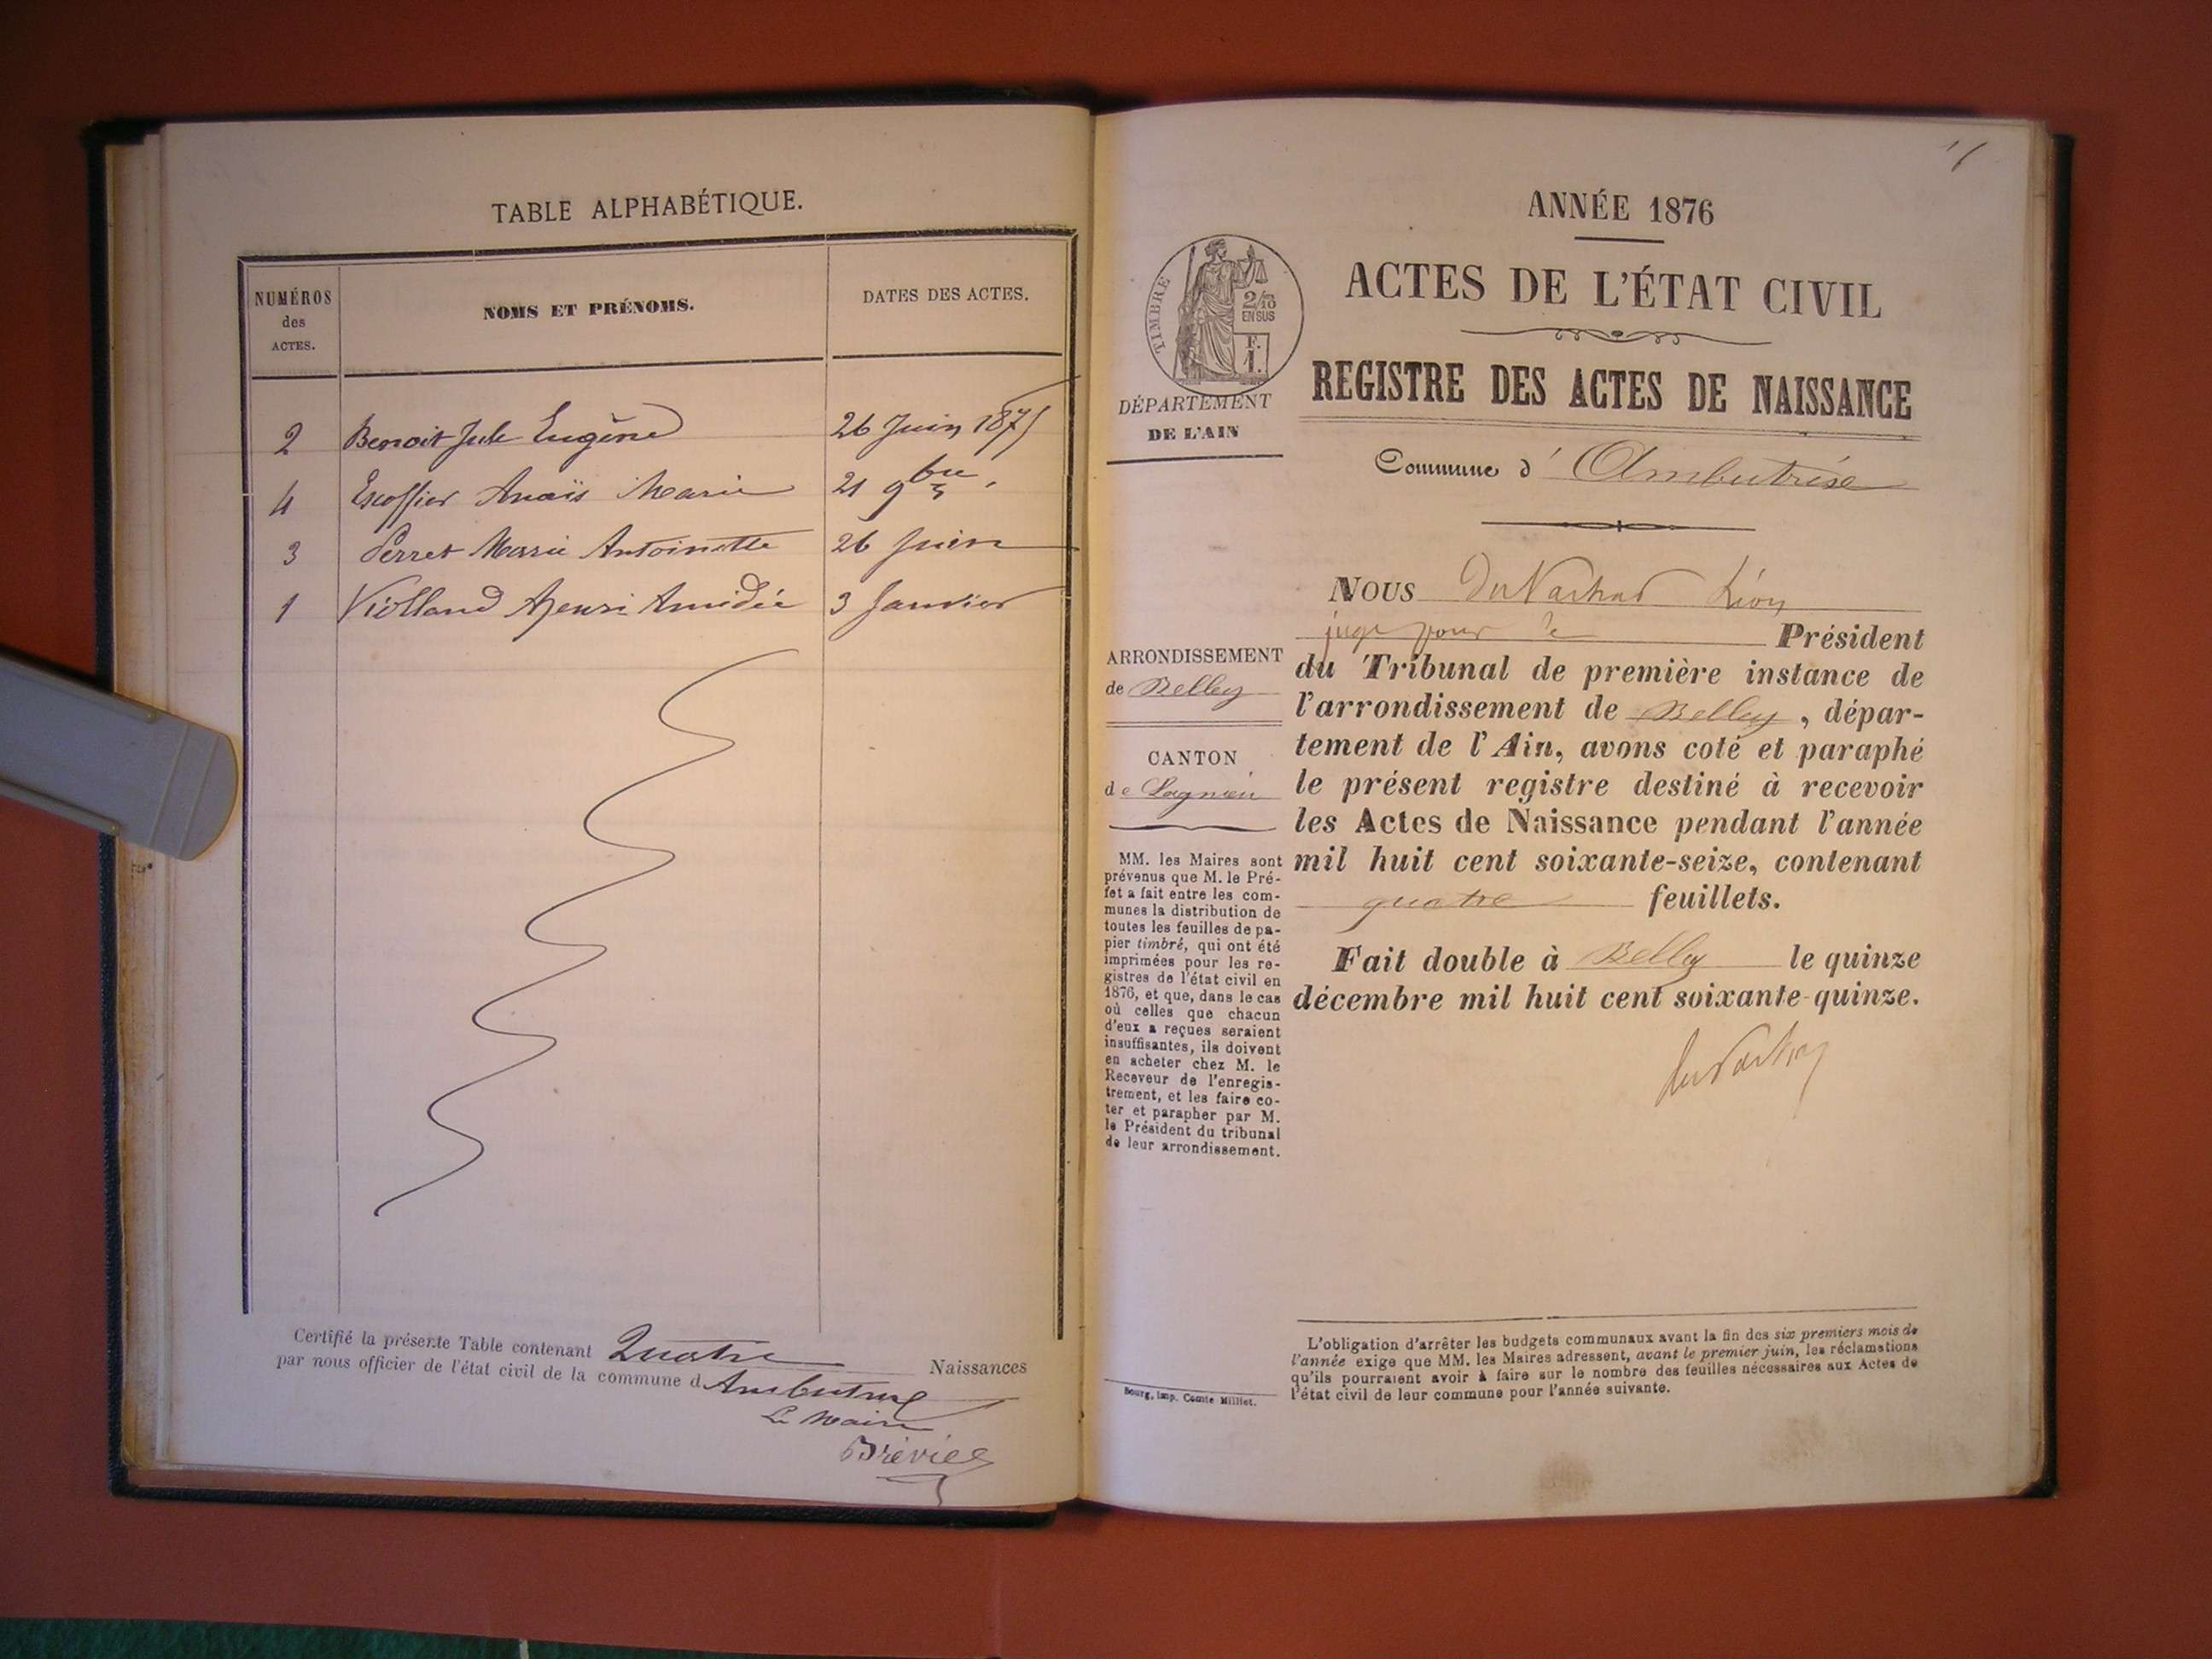 TABLE ALPHABÉTIQUE.
NUMÉROS des ACTES.
NOMS ET PRÉNOMS.
DATES DES ACTES.
2 Benoit Jule Eugène 26 Juin 1875
4 Escoffier Anaïs Marie 21 9bre
3 Perret Marie Antoinette 26 Juin
1 Violland Henri Amédée 3 Janvier
Certifié la présente Table contenant Quatre Naissances
par nous officier de l'état civil de la commune d Ambutrix
Le Maire
11
ANNÉE 1876
TIMBRE
2/10
EN SUS
F.
1.
ACTES DE L'ÉTAT CIVIL
REGISTRE DES ACTES DE NAISSANCE
DÉPARTEMENT
DE L'AIN
Commune d' Ambutrix
NOUS Léon
juge pour le Président
du Tribunal de première instance de
l'arrondissement de Belley, dépar-
tement de l'Ain, avons coté et paraphé
le présent registre destiné à recevoir
les Actes de Naissance pendant l'année
mil huit cent soixante-seize, contenant
quatre feuillets.
Fait double à Belley le quinze
décembre mil huit cent soixante-quinze.
ARRONDISSEMENT
de Belley
CANTON
de Lagnieu
MM. les Maires sont
prévenus que M. le Pré-
fet a fait entre les com-
munes la distribution de
toutes les feuilles de pa-
pier timbré, qui ont été
imprimées pour les re-
gistres de l'état civil en
1876, et que, dans le cas
où celles que chacun
d'eux a reçues seraient
insuffisantes, ils doivent
en acheter chez M. le
Receveur de l'enregis-
trement, et les faire co-
ter et parapher par M.
le Président du tribunal
de leur arrondissement.
Bourg, imp. Comte Milliet.
L'obligation d'arrêter les budgets communaux avant la fin des six premiers mois de
l'année exige que MM. les Maires adressent, avant le premier juin, les réclamations
qu'ils pourraient avoir à faire sur le nombre des feuilles nécessaires aux Actes de
l'état civil de leur commune pour l'année suivante.